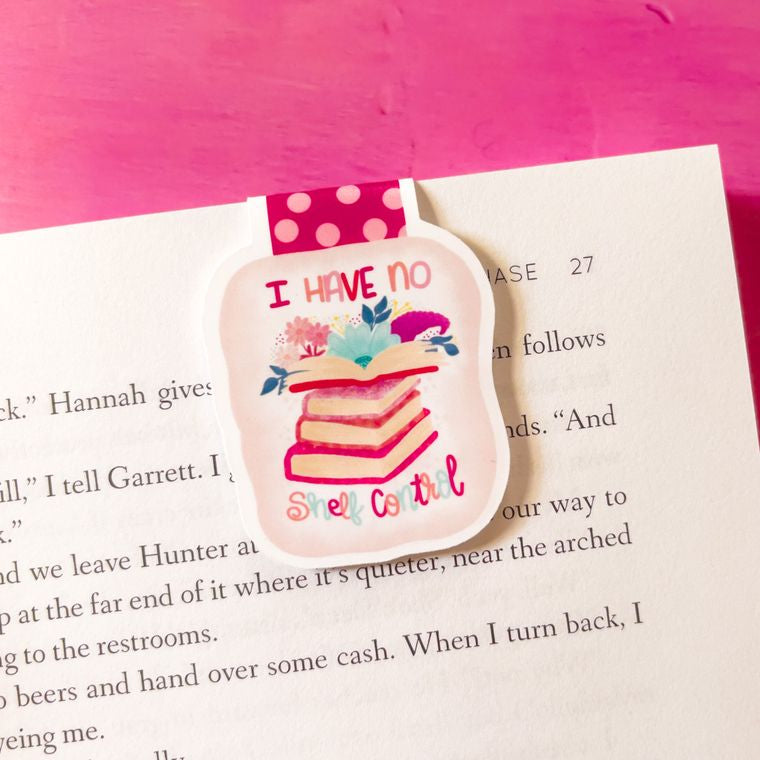 I HAVE NO
Shelf Control
HASE 27
en follows
ck.” Hannah gives
nds. “And
ill,” I tell Garrett. I
k.”
nd we leave Hunter at our way to
p at the far end of it where it’s quieter, near the arched
ng to the restrooms.
o beers and hand over some cash. When I turn back, I
yeing me.
ally